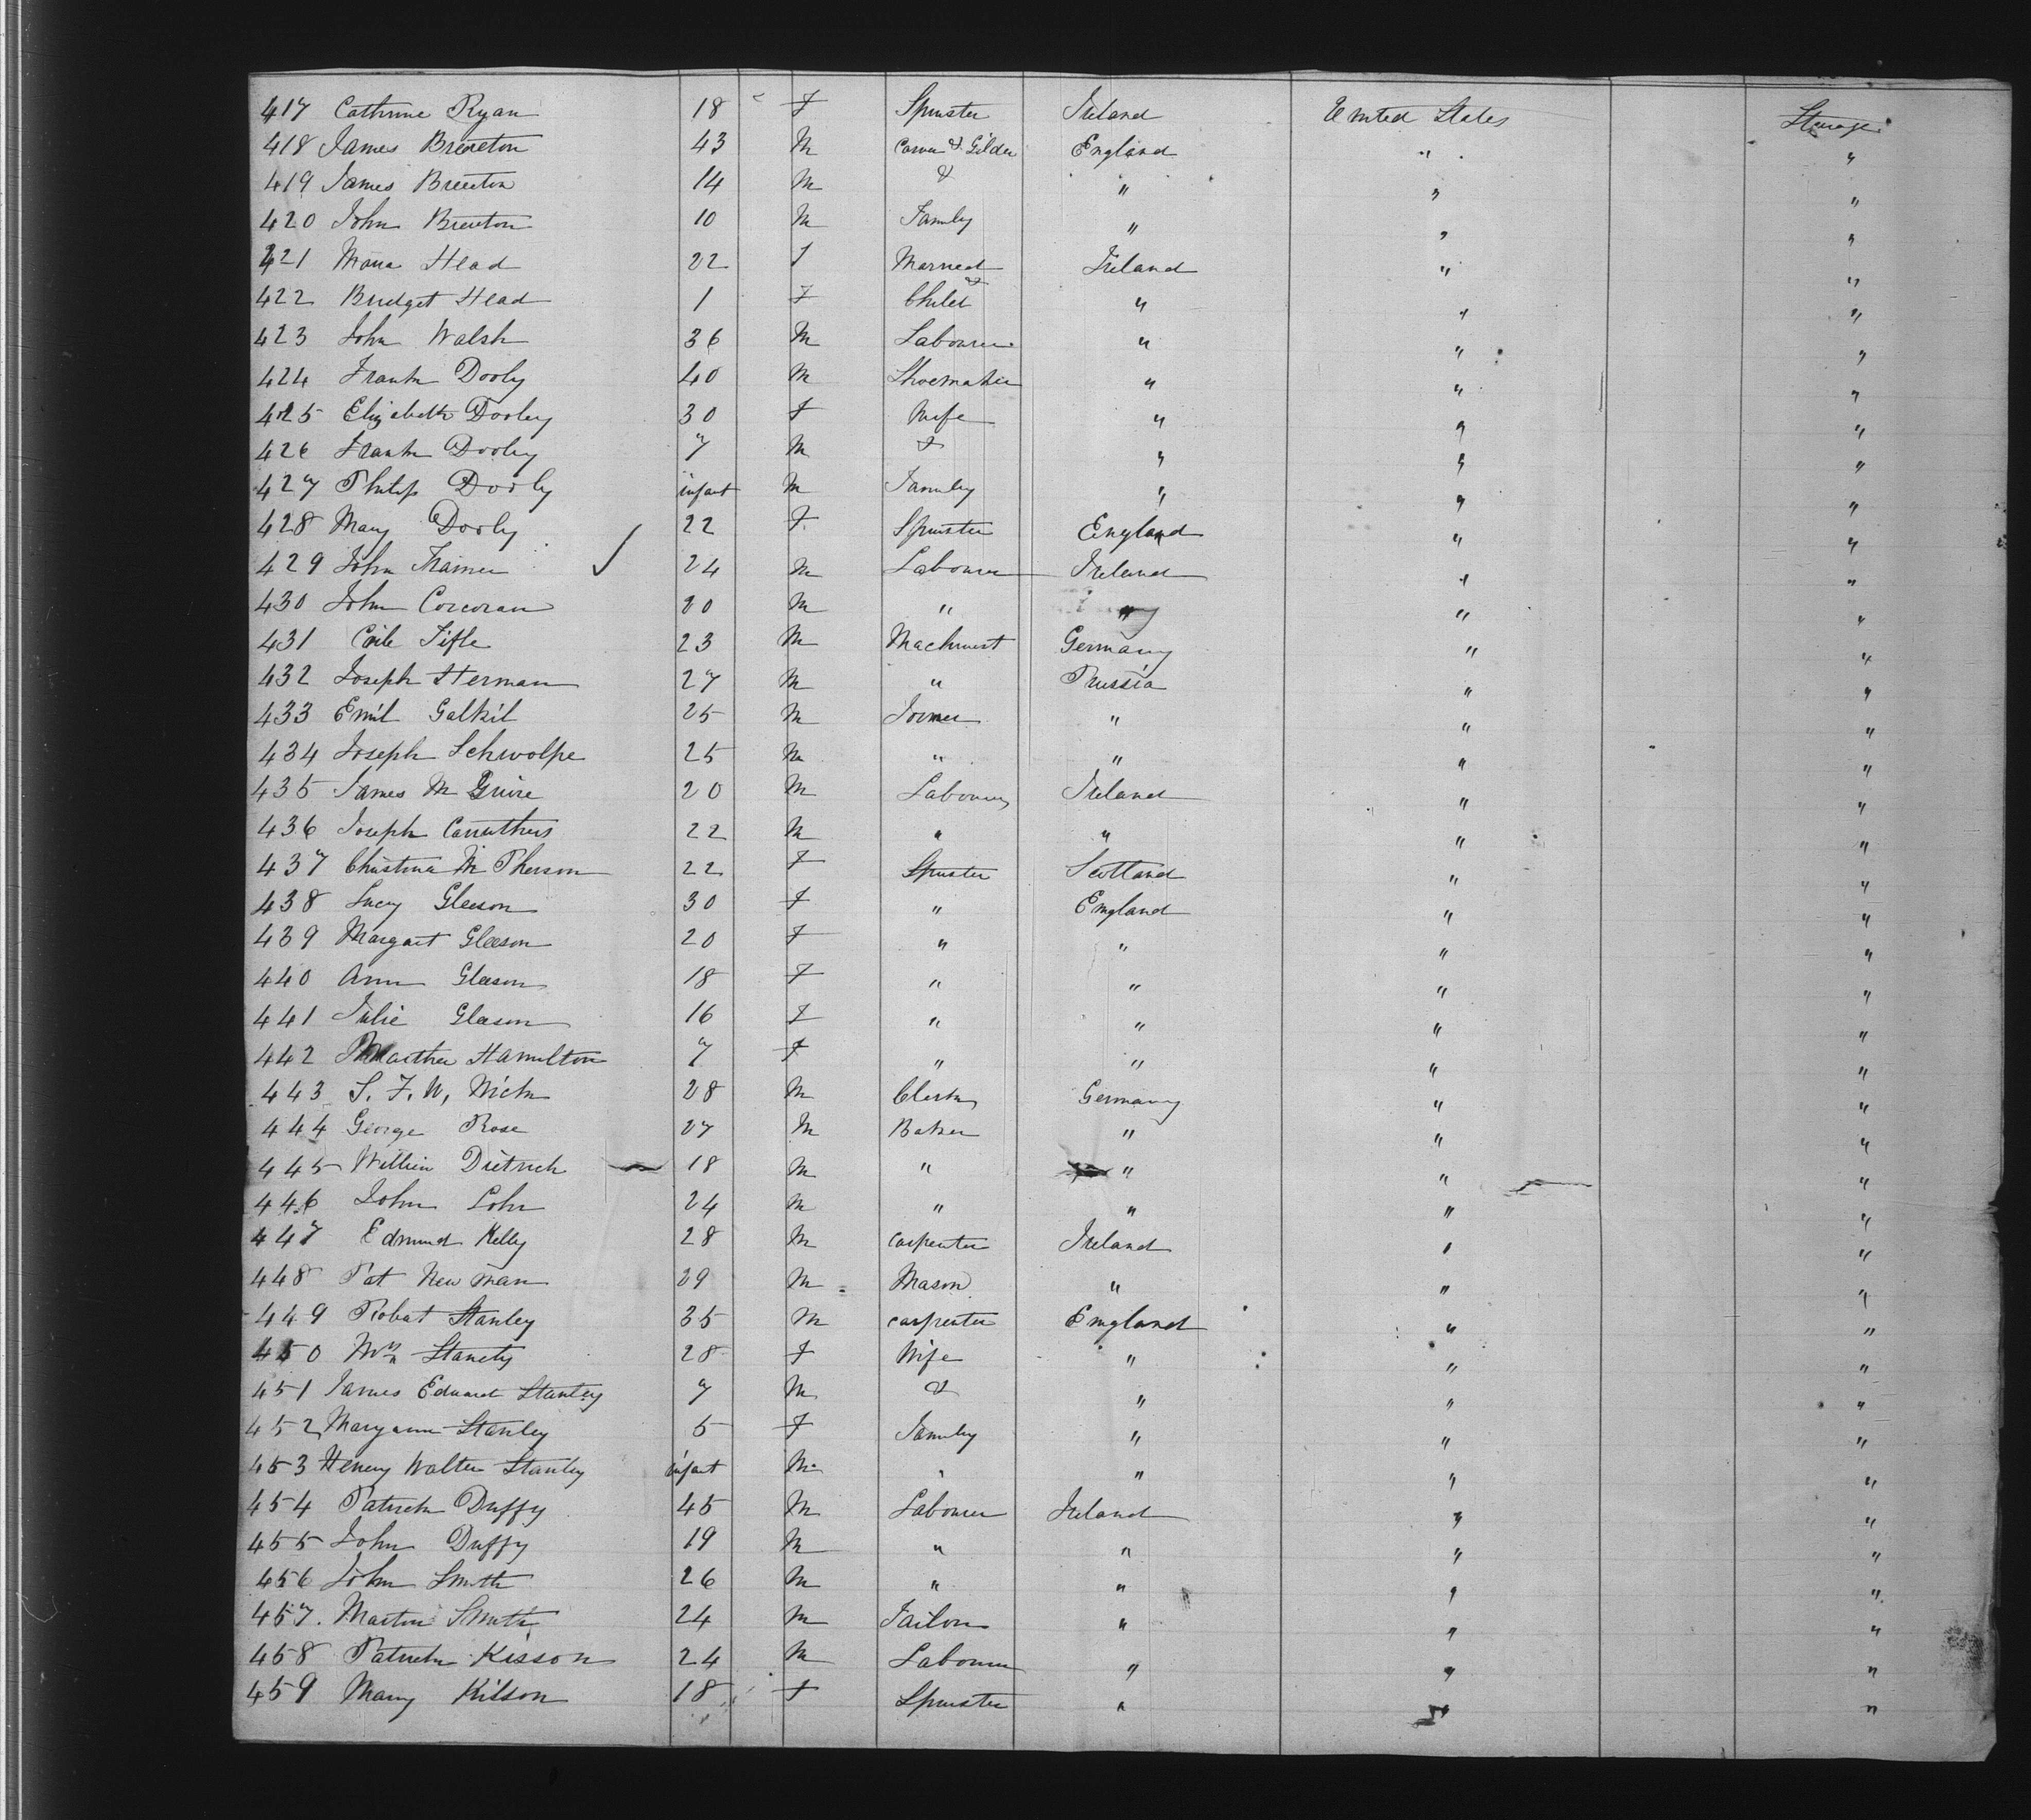 417 Cathrine Ryan 18 F Spinster Ireland United States Sterage
418 James Brereton 43 M Carver & Gilder England " "
419 James Brereton 14 M & " " "
420 John Brereton 10 M Family " " "
421 Maria Head 22 f Married Ireland " "
422 Bridget Head 1 F & Child " " "
423 John Walsh 36 M Labourer " " "
424 Frank Dooly 40 M Shoemaker " " "
425 Elizabeth Dooley 30 F Wife " " "
426 Frank Dooley 7 M & " " "
427 Philip Dooly infant M Family " " "
428 Mary Dooly 22 F Spinster England " "
429 John Trainer 24 M Labourer Ireland " "
430 John Corcoran 20 M " " " "
431 23 M Machinist Germany " "
432 Joseph Herman 27 M " Prussia " "
433 Emil Galkil 25 M Joiner " " "
434 Joseph Schwolpe 25 M " " " "
435 James Mc Guire 20 M Labourer Ireland " "
436 Joseph Carruthers 22 M " " " "
437 Christina Mc Pherson 22 F Spinster Scotland " "
438 Lucy Gleeson 30 F " England " "
439 Margaet Gleeson 20 F " " " "
440 Ann Gleeson 18 F " " " "
441 Julie Gleeson 16 F " " " "
442 Martha Hamilton 7 F " " " "
443 S. F. W, Wick 28 M Clerk Germany " "
444 George Rose 27 M Baker " " "
445 Willien Dietrich 18 M " " " "
446 John Lohr 24 M " " " "
447 Edmund Kelly 28 M carpenter Ireland " "
448 Pat Newman 29 M Mason " " "
449 Robat Stanley 35 M carpenter England " "
450 Mrs Stanely 28 F Wife " " "
451 James Edward Stanley 7 M & " " "
452 Maryann Stanley 5 F Family " " "
453 Henery Walter Stanley infant M " " " "
454 Patrick Duffy 45 M Labourer Ireland " "
455 John Duffy 19 M " " " "
456 John Smith 26 M " " " "
457. Martin Smith 24 M Tailor " " "
458 Patrick Kisson 24 M Labourer " " "
459 Mary Kilson 18 F Spinster " " "